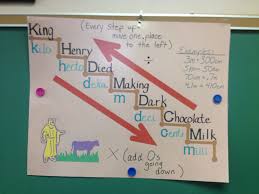 King
kilo
(Every step up
move one place
to the left)
Henry
hecto
Died
deka
÷
Examples:
3m = 300cm
Making
m
Dark
deci
Chocolate
centi
Milk
milli
X (add 0s
going
down)